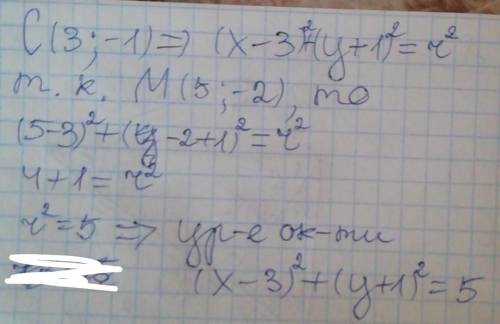 C(3;-1)⇒ (x-3)²+(y+1)²=r²
т. к. M(5;-2), то
(5-3)²+(-2+1)²=r²
4+1=r²
r²=5 ⇒ ур-е ок-ти
(x-3)²+(y+1)²=5